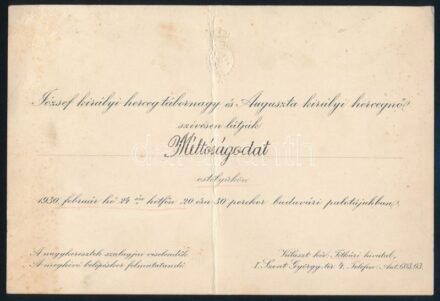 József királyi herceg tábornagy és Auguszta királyi hercegnő
szivesen látják
Méltóságodat
estélyükön
1930 február hó 24 én hétfőn 20 óra 30 perckor budavári palotájukban.
A nagykeresztek szalagjai viselendők
A meghívó belépéskor felmutatandó.
Választ kér Titkári hivatal,
I. Szent György-tér 4. Telefon: Aut. 605.03.